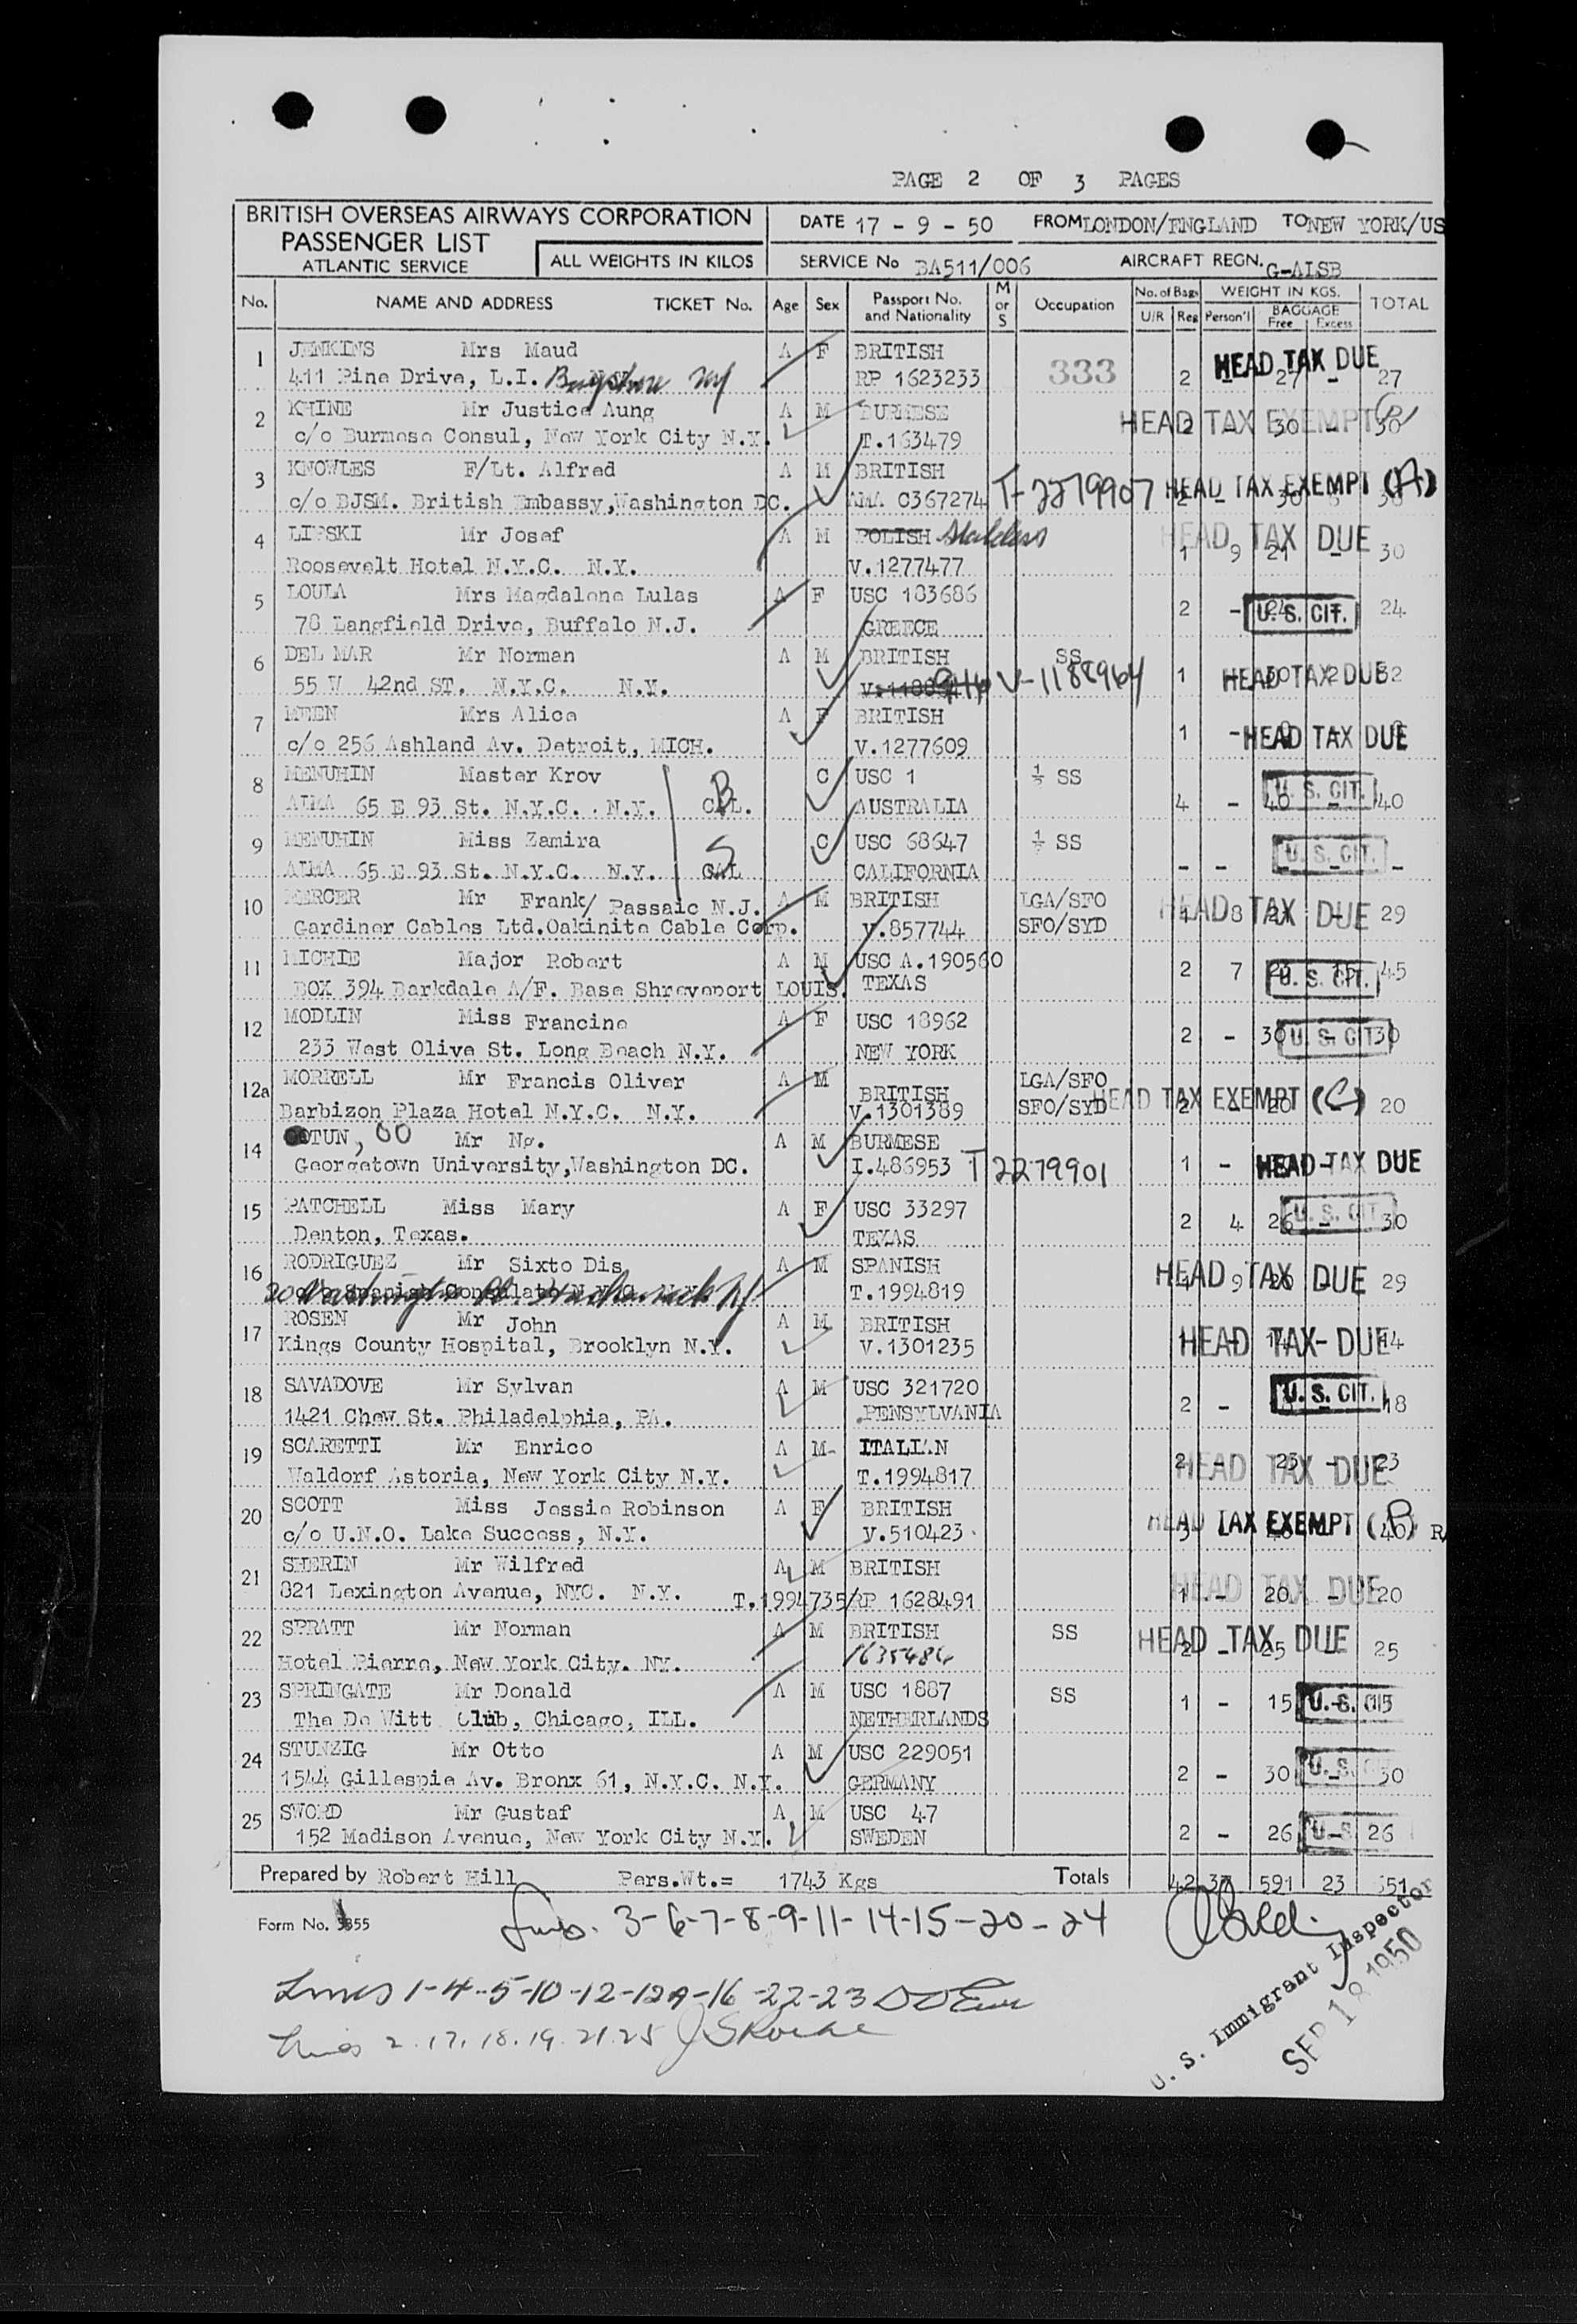 PAGE 2 OF 3 PAGES
BRITISH OVERSEAS AIRWAYS CORPORATION
PASSENGER LIST
ATLANTIC SERVICE
ALL WEIGHTS IN KILOS
DATE 17 - 9 - 50 FROM LONDON/ENGLAND TO NEW YORK/US
SERVICE No BA511/006 AIRCRAFT REGN. G-ALSB
No. NAME AND ADDRESS TICKET No. Age Sex Passport No. and Nationality M or S Occupation No. of Bags U/R Reg WEIGHT IN KGS. Person'l BAGGAGE Free Excess TOTAL
1 JENKINS Mrs Maud A F BRITISH HEAD TAX DUE
411 Pine Drive, L.I. Bayshore NY RP 1623233 333 2 - 27 - 27
2 KHINE Mr Justice Aung A M BURMESE
c/o Burmese Consul, New York City N.Y. T.163479 HEAD TAX EXEMPT 2 - 30 - 30
3 KNOWLES F/Lt. Alfred A M BRITISH
c/o BJSM. British Embassy, Washington DC. AMA C367274 T-2279907 HEAD TAX EXEMPT (A) 2 - 30
4 LIPSKI Mr Josef A M POLISH Stateless HEAD TAX DUE
Roosevelt Hotel N.Y.C. N.Y. V.1277477 1 9 21 - 30
5 LOULA Mrs Magdalene Lulas A F USC 183686
78 Langfield Drive, Buffalo N.J. GREECE 2 - 24 - 24 U.S. CIT.
6 DEL MAR Mr Norman A M BRITISH SS
55 W 42nd ST. N.Y.C. N.Y. V-1188964 1 - 30 2 32 HEAD TAX DUE
7 MEEN Mrs Alice A F BRITISH
c/o 256 Ashland Av. Detroit, MICH. V.1277609 1 - HEAD TAX DUE
8 MENUHIN Master Krov C USC 1 ½ SS
ALMA 65 E 93 St. N.Y.C. N.Y. CAL. B AUSTRALIA 4 - 40 - 40 U.S. CIT.
9 MENUHIN Miss Zamira C USC 68647 ½ SS
ALMA 65 E 93 St. N.Y.C. N.Y. CAL S CALIFORNIA - - - - - U.S. CIT.
10 MERCER Mr Frank/ Passaic N.J. A M BRITISH LGA/SFO
Gardiner Cables Ltd. Oakinite Cable Corp. V.857744 SFO/SYD 1 8 21 - 29 HEAD TAX DUE
11 MICHIE Major Robert A M USC A.190560
BOX 394 Barkdale A/F. Base Shreveport LOUIS. TEXAS 2 7 23 15 45 U.S. CIT.
12 MODLIN Miss Francine A F USC 18962
233 West Olive St. Long Beach N.Y. NEW YORK 2 - 30 - 30 U.S. CIT
12a MORRELL Mr Francis Oliver A M BRITISH LGA/SFO
Barbizon Plaza Hotel N.Y.C. N.Y. V.1301389 SFO/SYD HEAD TAX EXEMPT (C) 2 - 20 - 20
14 TUN, OO Mr Ng. A M BURMESE
Georgetown University, Washington DC. I.486953 T 2279901 1 - HEAD TAX DUE
15 PATCHELL Miss Mary A F USC 33297
Denton, Texas. TEXAS 2 4 26 - 30 U.S. CIT
16 RODRIGUEZ Mr Sixto Dis A M SPANISH
c/o Spanish Consulate N.Y.C. N.Y. 20 Washington Pl. Hackensack NJ T.1994819 1 9 20 - 29 HEAD TAX DUE
17 ROSEN Mr John A M BRITISH
Kings County Hospital, Brooklyn N.Y. V.1301235 1 - 14 - 14 HEAD TAX DUE
18 SAVADOVE Mr Sylvan A M USC 321720
1421 Chew St. Philadelphia, PA. PENSYLVANIA 2 - 18 U.S. CIT.
19 SCARETTI Mr Enrico A M ITALIAN
Waldorf Astoria, New York City N.Y. T.1994817 2 - 23 - 23 HEAD TAX DUE
20 SCOTT Miss Jessie Robinson A F BRITISH
c/o U.N.O. Lake Success, N.Y. V.510423 HEAD TAX EXEMPT (B) 3 - 40 - 40 R
21 SHERIN Mr Wilfred A M BRITISH
821 Lexington Avenue, NYC. N.Y. T.1994735/RP 1628491 1 - 20 - 20 HEAD TAX DUE
22 SPRATT Mr Norman A M BRITISH SS
Hotel Pierre, New York City. NY. 1635486 2 - 25 - 25 HEAD TAX DUE
23 SPRINGATE Mr Donald A M USC 1887 SS
The De Witt Club, Chicago, ILL. NETHERLANDS 1 - 15 - 15 U.S. CIT
24 STUNZIG Mr Otto A M USC 229051
1544 Gillespie Av. Bronx 61, N.Y.C. N.Y. GERMANY 2 - 30 - 30 U.S. C
25 SWORD Mr Gustaf A M USC 47
152 Madison Avenue, New York City N.Y. SWEDEN 2 - 26 - 26 U.S
Prepared by Robert Hill Pers.Wt.= 1743 Kgs Totals 42 37 591 23 651
Form No. 3855
Lines 3-6-7-8-9-11-14-15-20-24
Lines 1-4-5-10-12-12A-16-22-23
Lines 2.17.18.19.21.25
U. S. Immigrant Inspector
SEP 18 1950